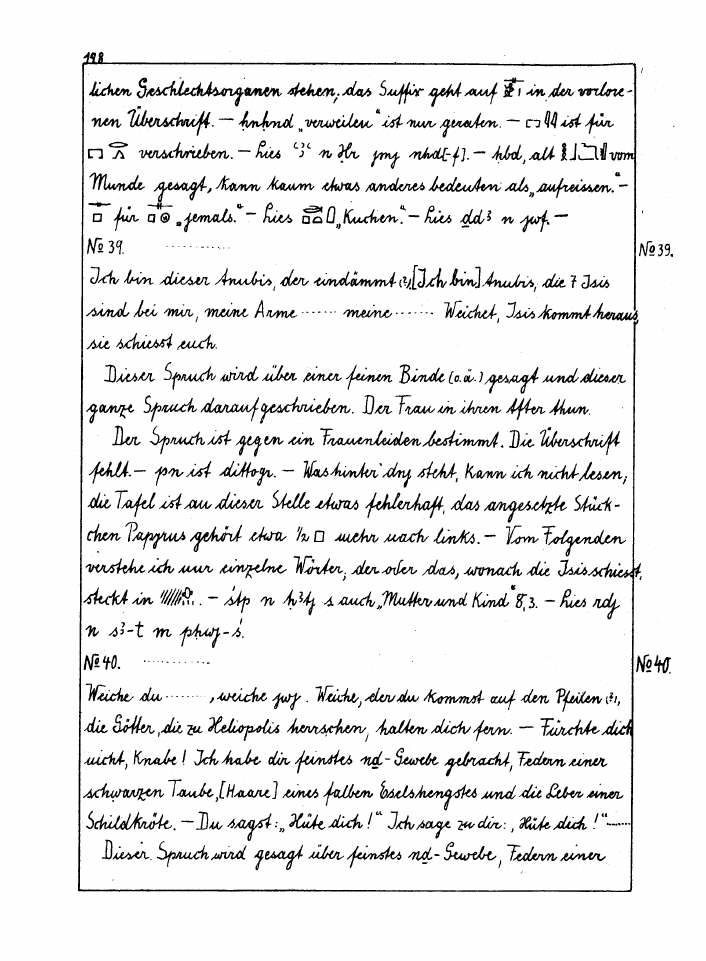 198
lichen Geschlechtsorganen stehen; das Suffix geht auf in der verlore-
nen Überschrift. — hnhnd „verweilen“ ist nur geraten. — ist für
verschrieben. — lies n Hr jmj nhd[-f]. — hbd, alt vom
Munde gesagt, kann kaum etwas anderes bedeuten als „aufreissen.“ —
für „jemals.“ — lies „Kuchen.“ — lies dd³ n jwf. —
№ 39. ...........
№ 39.
Ich bin dieser Anubis, der eindämmt (?), [Ich bin] Anubis, die 7 Isis
sind bei mir, meine Arme ...... meine ....... Weichet, Isis kommt heraus,
sie schiesst euch.
Dieser Spruch wird über einer feinen Binde (o.ä.) gesagt und dieser
ganze Spruch darauf geschrieben. Der Frau in ihren After thun.
Der Spruch ist gegen ein Frauenleiden bestimmt. Die Überschrift
fehlt. — pn ist dittogr. — Was hinter dnj steht, kann ich nicht lesen;
die Tafel ist an dieser Stelle etwas fehlerhaft, das angesetzte Stück-
chen Papyrus gehört etwa ½ □ mehr nach links. — Vom Folgenden
verstehe ich nur einzelne Wörter; der oder das, wonach die Isis schiesst,
steckt in . — śtp n ḥ³tj s auch „Mutter und Kind“ 8,3. — lies rdj
n s³-t m pḥwj-ś.
№ 40. ............
№ 40.
Weiche du ......., weiche jwj. Weiche, der du kommst auf den Pfeilen (?),
die Götter, die zu Heliopolis herrschen, halten dich fern. — Fürchte dich
nicht, Knabe! Ich habe dir feinstes nd-Gewebe gebracht, Federn einer
schwarzen Taube, [Haare] eines falben Esselshengstes und die Leber einer
Schildkröte. — Du sagst: „Hüte dich!“ Ich sage zu dir: „Hüte dich!“ ......
Dieser Spruch wird gesagt über feinstes nd-Gewebe, Federn einer